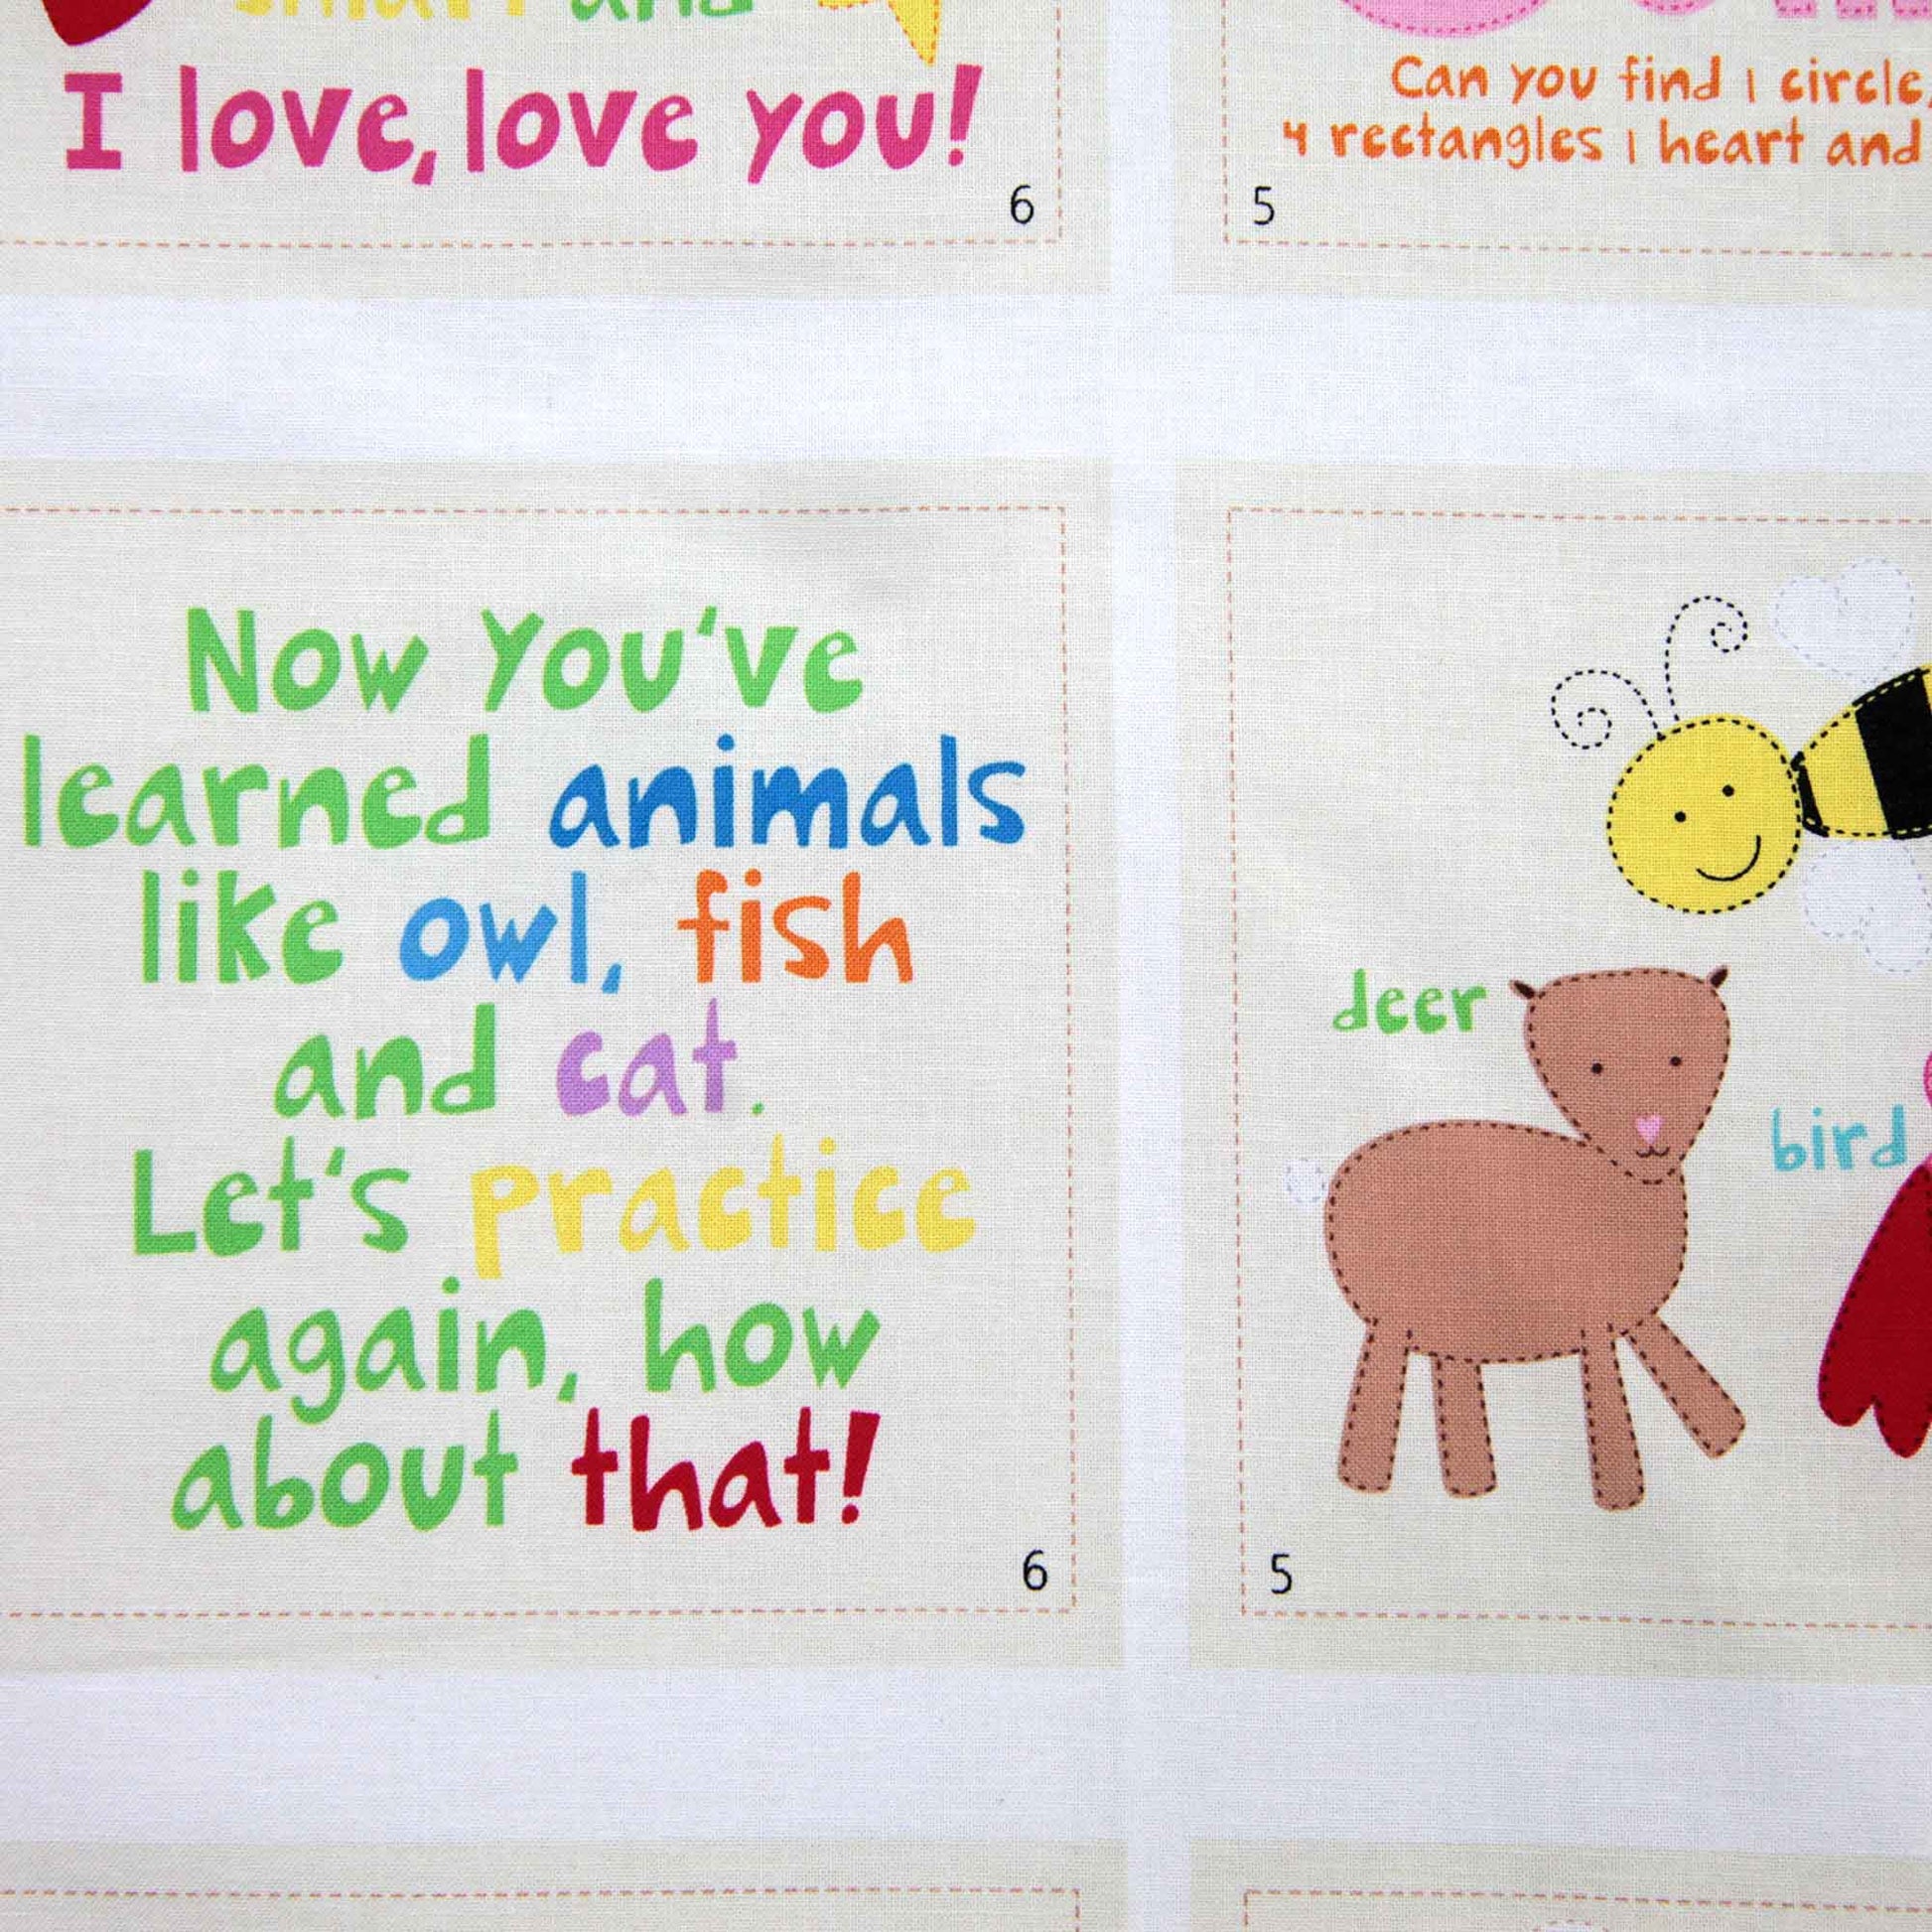 smart and
I love, love you!
6
Can you find 1 circle,
4 rectangles 1 heart and
5
Now You've
learned animals
like owl, fish
and cat.
Let's practice
again, how
about that!
6
deer
bird
5